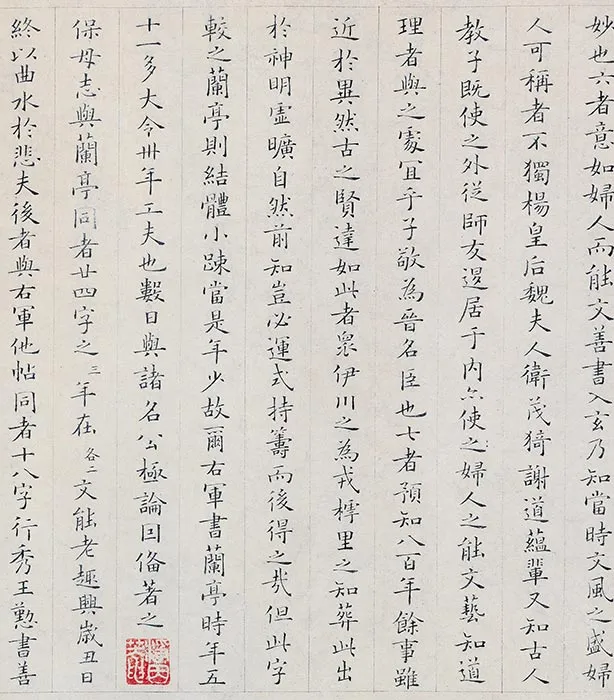 妙也六者意如婦人而能文善書入玄乃知當時文風之盛婦
人可稱者不獨楊皇后魏夫人衛茂猗謝道蘊輩又知古人
教子既使之外從師友退居于内亦使之婦人之能文藝知道
理者與之處宜乎子敬為晉名臣也七者預知八百年餘事雖
近於異然古之賢達如此者衆伊川之為戎樗里之知葬此出
於神明虛曠自然前知豈必運式持籌而後得之哉但此字
較之蘭亭則結體小踈當是年少故爾右軍書蘭亭時年五
十一多大令卅年工夫也數日與諸名公極論因俻著之
保母志與蘭亭同者廿四字之三年在各二文能老趣興歲丑日
終以曲水於悲夫後者與右軍他帖同者十八字行秀王懃書善